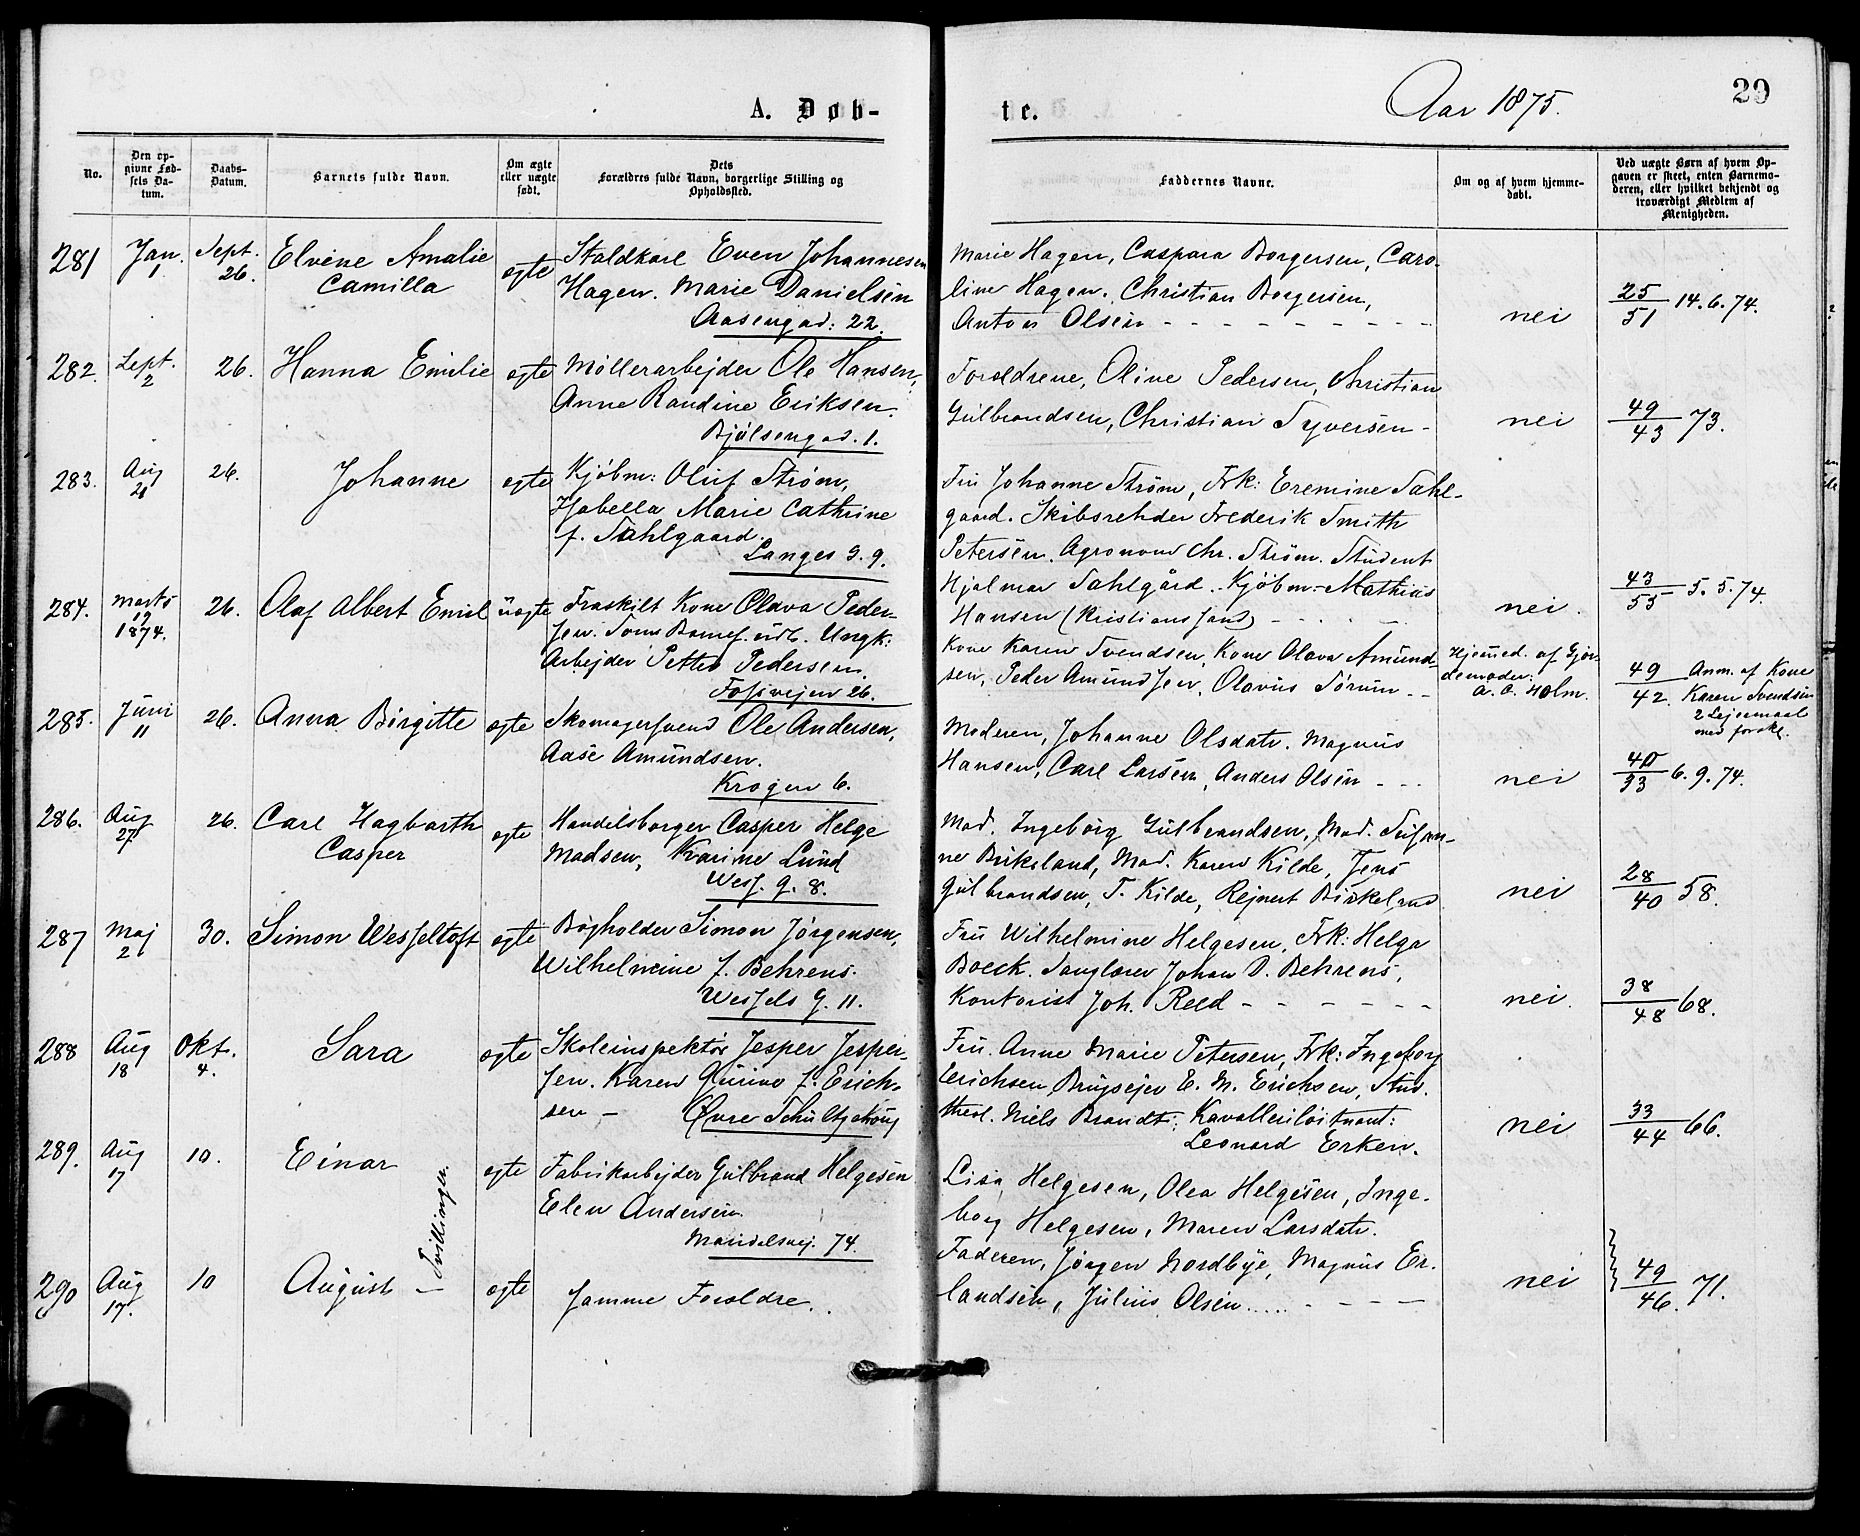 A. Døb-
te.
Aar 1875.
29
No.
Den op-
givne Fød-
sels Da-
tum.
Daabs-
Datum.
Barnets fulde Navn.
Om ægte
eller uægte
født.
Dets
Forældres fulde Navn, borgerlige Stilling og
Opholdssted.
Faddernes Navne.
Om og af hvem hjemme-
døbt.
Ved uægte Børn af hvem Op-
gaven er skeet, enten Barnemo-
deren, eller hvilket bekjendt og
troværdigt Medlem af
Menigheden.
281 Jan. 1 Sept. 26. Elvine Amalie
Camilla
ægte
Staldkarl Even Johannesen
Hagen. Marie Danielsen
Aasengad: 22.
Marie Hagen, Caspara Borgersen, Caro-
line Hagen. Christian Borgersen,
Anton Olsen - - - - - - - - -
nei
25/51 14.6.74.
282. Sept. 2 26. Hanna Emilie
ægte
Møllerarbejder Ole Hansen,
Anne Randine Eriksen.
Bjølsengad. 1.
Foroldrene, Oline Pedersen, Christian
Gulbrandsen, Christian Syversen -
nei
49/43 73.
283. Aug 21 26. Johanne
ægte
Kjøbm: Oluf Strøm,
Isabella Marie Cathrine
f. Sahlgaard.
Langes g. 9.
Fru Johanne Strøm, Frk: Eremine Sahl-
gaard. Skibsrehder Frederik Smith
Petersen. Agronom Chr. Strøm. Student
Hjalmar Sahlgård. Kjøbm: Mathias
Hansen (Kristianssand) - - - -
nei.
43/55 5.5.74.
284. Marts 19 1874. 26. Olaf Albert Emil
uægte
Fraskilt Kone Olava Peder-
sen. Som Barnef. udl. Ungk:
Arbejder Petter Pedersen.
Fossvejen 26.
Kone Karen Svendsen, Kone Olava Amund-
sen, Peder Amundsen, Olavus Sørum - -
Hjemmed. af Gjor-
demoder:
A. C. Holm.
49/42. Anm. af Kone
Karen Svendsen
2 Lejermaal
med forskl.
285. Juni 11 26. Anna Birgitte
ægte
Skomagersvend Ole Andersen,
Aase Amundsen.
Krogen 6.
Moderen, Johanne Olsdatr. Magnus
Hansen, Carl Larsen, Anders Olsen - - -
nei
40/33 6.9.74.
286. Aug 27 26. Carl Hagbarth
Casper
ægte
Handelsborger Casper Helge
Madsen, Karine Lund
Wess. g. 8.
Mad. Ingeborg Gulbrandsen, Mad. Susan-
ne Birkeland, Mad. Karen Kilde, Jens
Gulbrandsen, T. Kilde, Rejnert Birkeland
nei
28/40 58.
287 Maj 2 30. Simon Wesseltoft
ægte
Bogholder Simon Jørgensen,
Wilhelmine f. Behrens.
Wessels g. 11.
Fru Wilhelmine Helgesen, Frk: Helga
Boeck. Sanglærer Johan D. Behrens,
Kontorist Joh. Reed - - - - - -
nei.
38/48 68.
288 Aug 18 Okt. 4. Sara
ægte
Skoleinspektør Jesper Jesper-
sen. Karen Gurine f. Erich-
sen -
Øvre Schultzehaug
Fru. Anne Marie Petersen, Frk: Ingeborg
Erichsen, Brugsejer E. N. Erichsen, Stud.
theol. Niels Brandt, Kavallerilöitnant:
Leonard Erken.
nei
33/44 66.
289. Aug 17 10. Einar
Tvillinger.
ægte
Fabrikarbejder Gulbrand Helgesen
Elen Andersen
Maridalsvej. 74.
Lisa Helgesen, Olea Helgesen, Inge-
borg Helgesen, Maren Larsdatr.
290 Aug 17. 10 August -
ægte
samme Foroldre.
Faderen, Jørgen Nordbye, Magnus Er-
landsen, Julius Olsen..... - - - -
nei
49/46. 71.